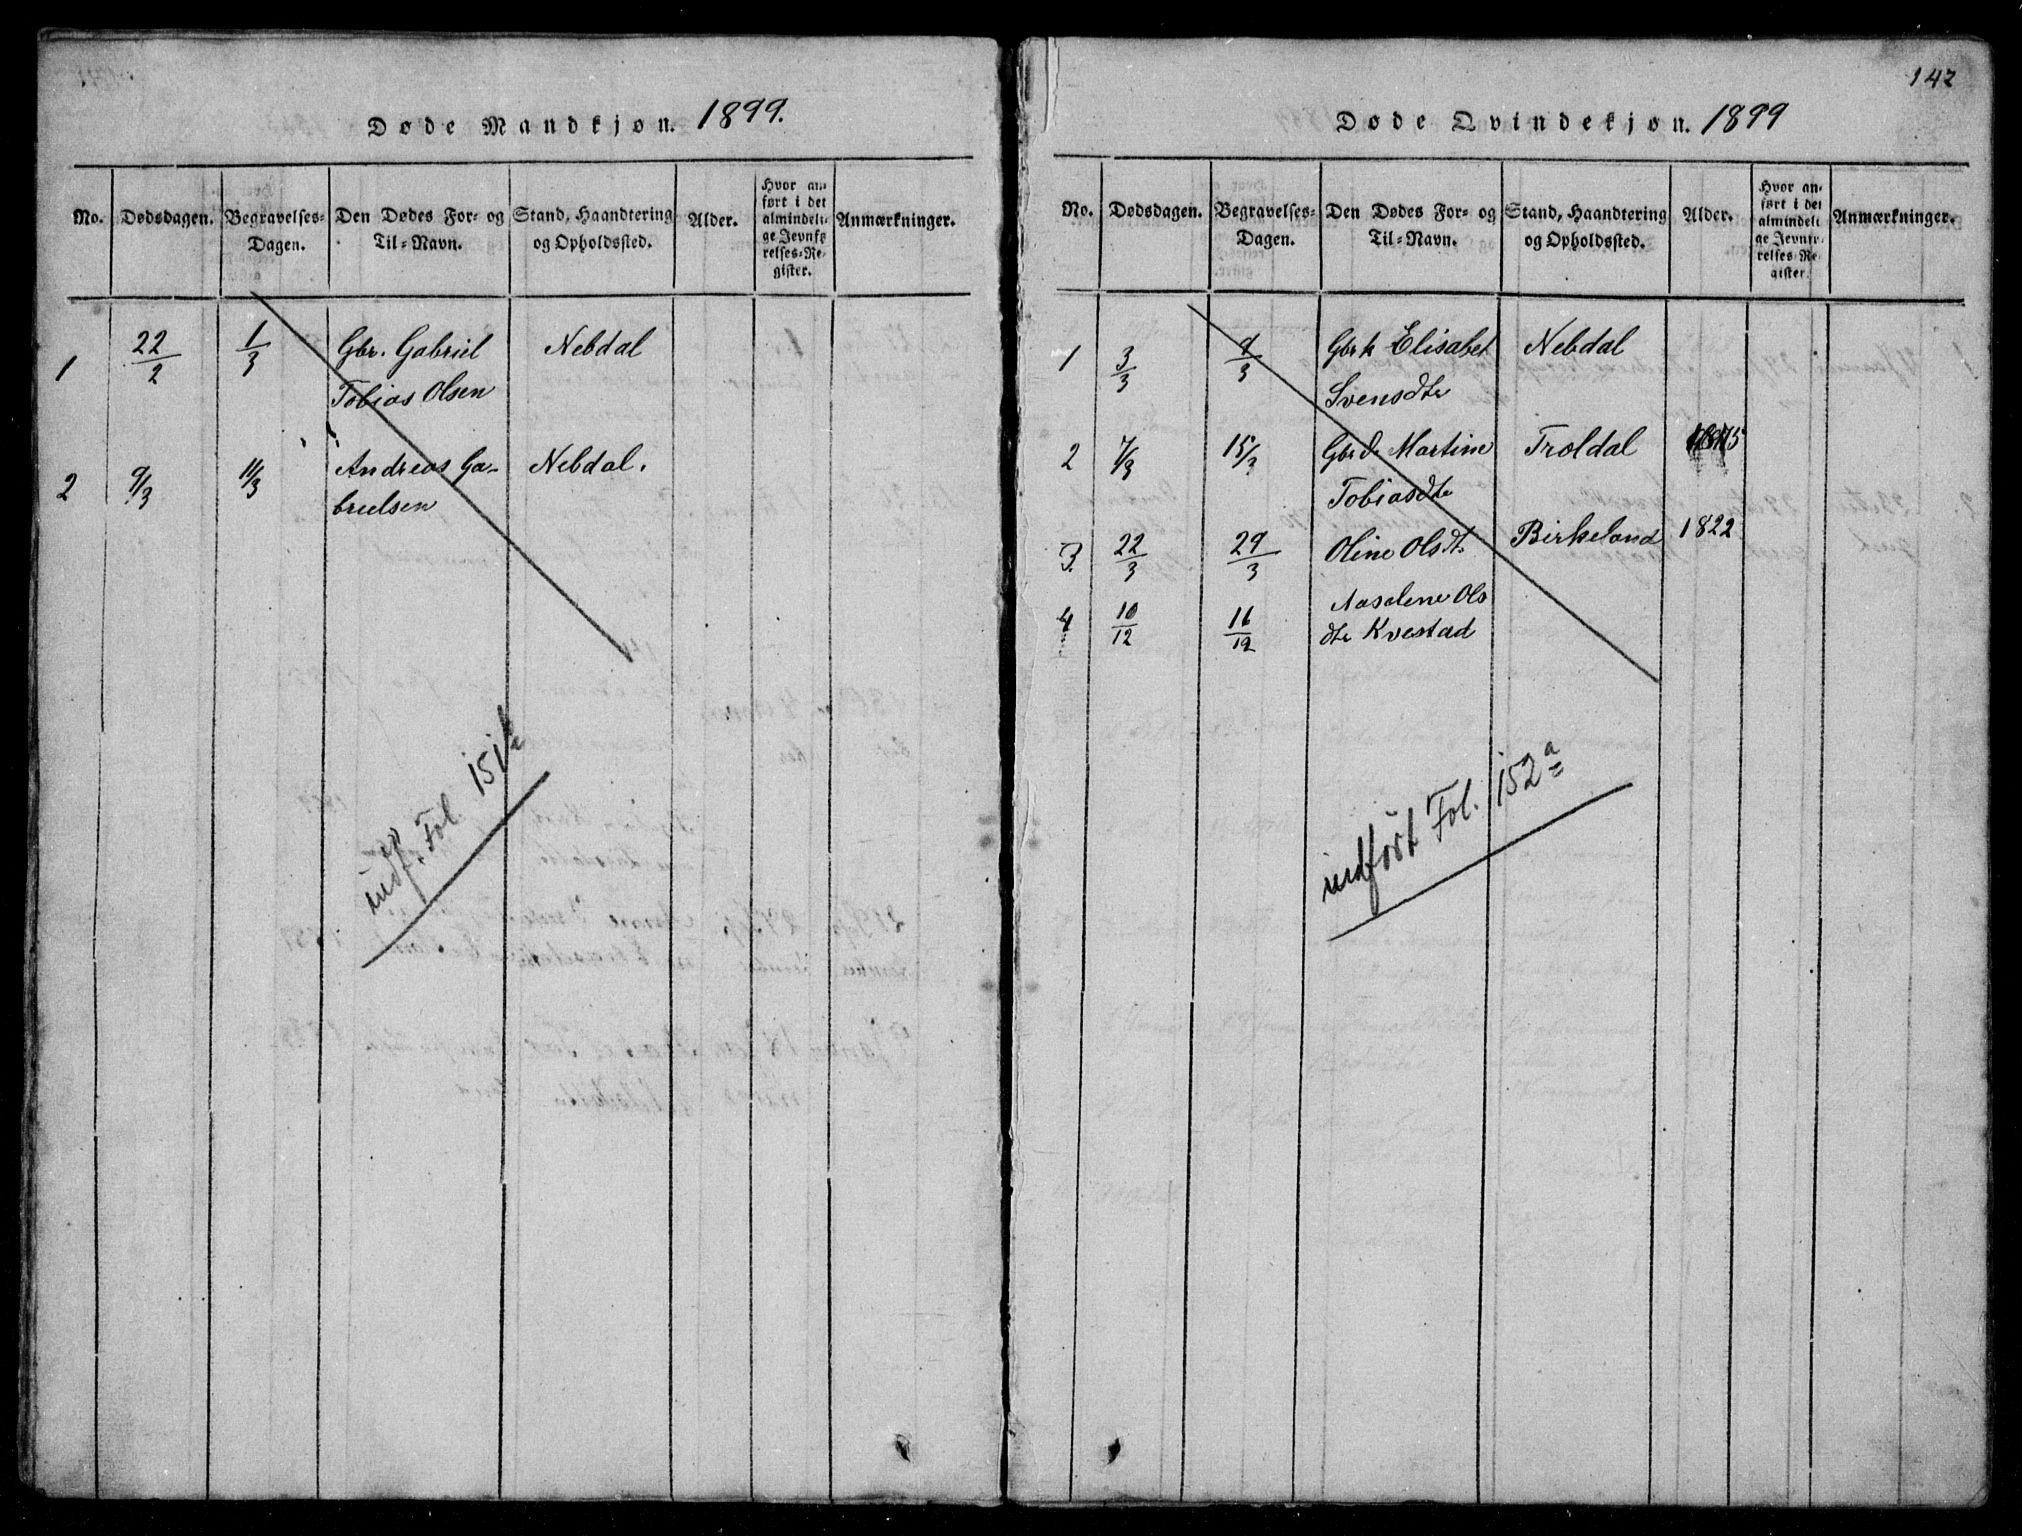 Døde Mandkjøn. 1899.
No. Dødsdagen. Begravelses-Dagen. Den Dødes For- og Til-Navn. Stand, Haandtering og Opholdssted. Alder. Hvor anført i det almindelige Jevnførelses-Register. Anmærkninger.
1 22/2 1/3 Gbr. Gabriel Nebdal
Tobias Olsen
2 9/3 11/3 Andreas Ga- Nebdal.
brielsen
indf. Fol. 151b
142
Døde Qvindekjøn. 1899
No. Dødsdagen. Begravelses-Dagen. Den Dødes For- og Til-Navn. Stand, Haandtering og Opholdssted. Alder. Hvor anført i det almindelige Jevnførelses-Register. Anmærkninger.
1 3/3 9/3 Gbrk Elisabet Nebdal
Svensdtr
2 7/3 15/3 Gbrd. Martine Troldal
Tobiasdtr
3. 22/3 29/3 Oline Olsdt. Birkeland 1822
4 10/12 16/12 Aaselene Ols
dtr Kvestad
indført Fol. 152a